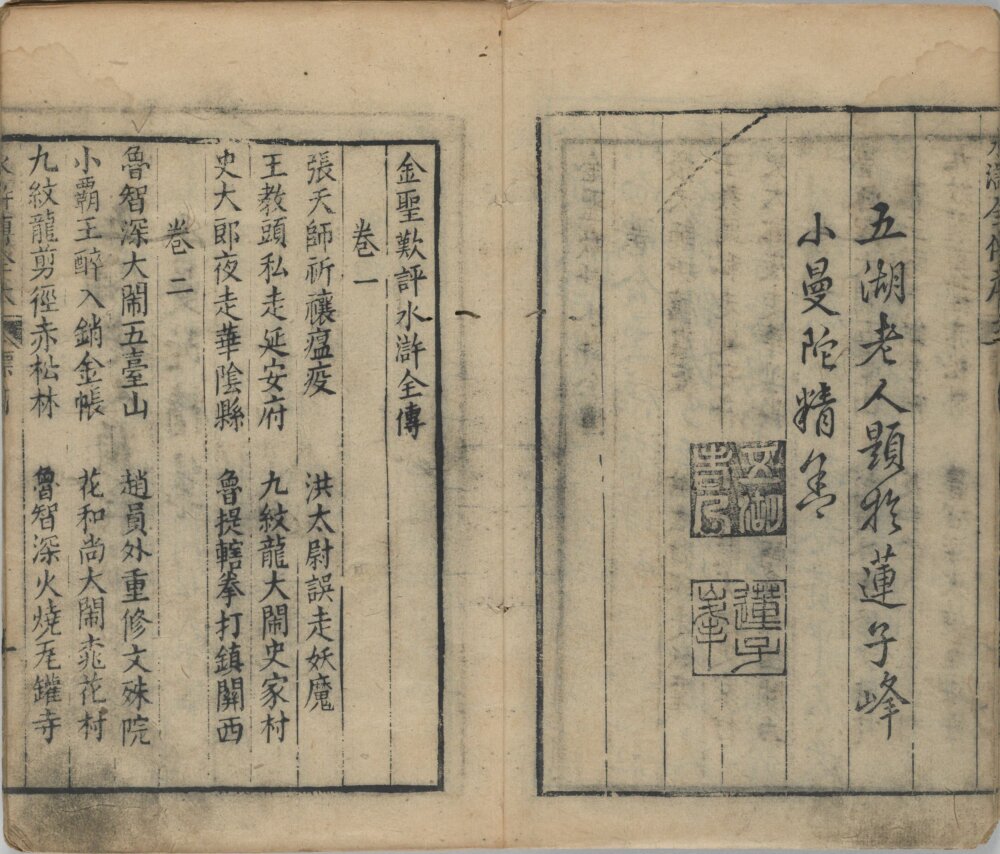 五湖老人題於蓮子峰
小曼陀精舍
五湖
老人
蓮子
峯
金聖歎評水滸全傳
卷一
張天師祈禳瘟疫 洪太尉誤走妖魔
王教頭私走延安府 九紋龍大鬧史家村
史大郎夜走華陰縣 魯提轄拳打鎮關西
卷二
魯智深大鬧五臺山 趙員外重修文殊院
小霸王醉入銷金帳 花和尚大鬧桃花村
九紋龍剪徑赤松林 魯智深火燒瓦罐寺